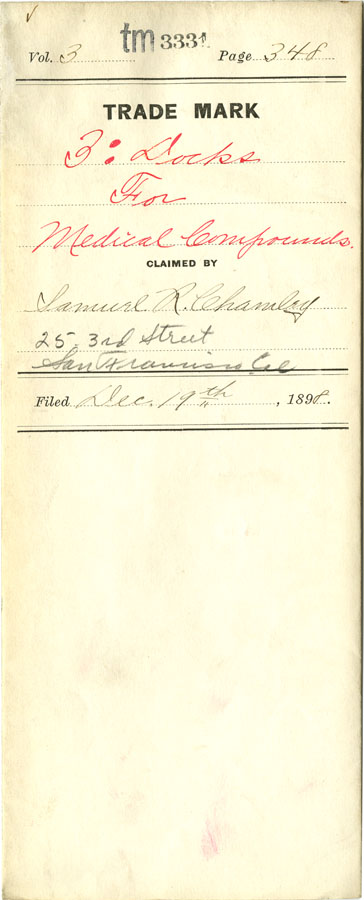 tm 3331
Vol. 3 Page 348
TRADE MARK
3: Docks
For
Medical Compounds.
CLAIMED BY
Samuel R. Chamley
25-3rd Street
San Francisco Cal
Filed Dec. 19th, 1898.